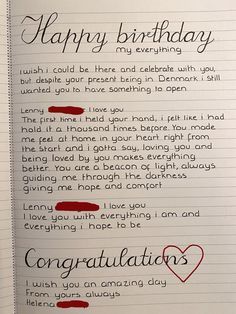 Happy birthday
my everything
I wish i could be there and celebrate with you,
but despite your present being in Denmark i still
wanted you to have something to open
Lenny I love you
The first time i held your hand, i felt like i had
hold it a thousand times before. You made
me feel at home in your heart right from
the start and i gotta say, loving you and
being loved by you makes everything
better. You are a beacon of light, always
guiding me through the darkness
giving me hope and comfort
Lenny I love you
I love you with everything i am and
everything i hope to be
Congratulations
I wish you an amazing day
From yours always
Helena